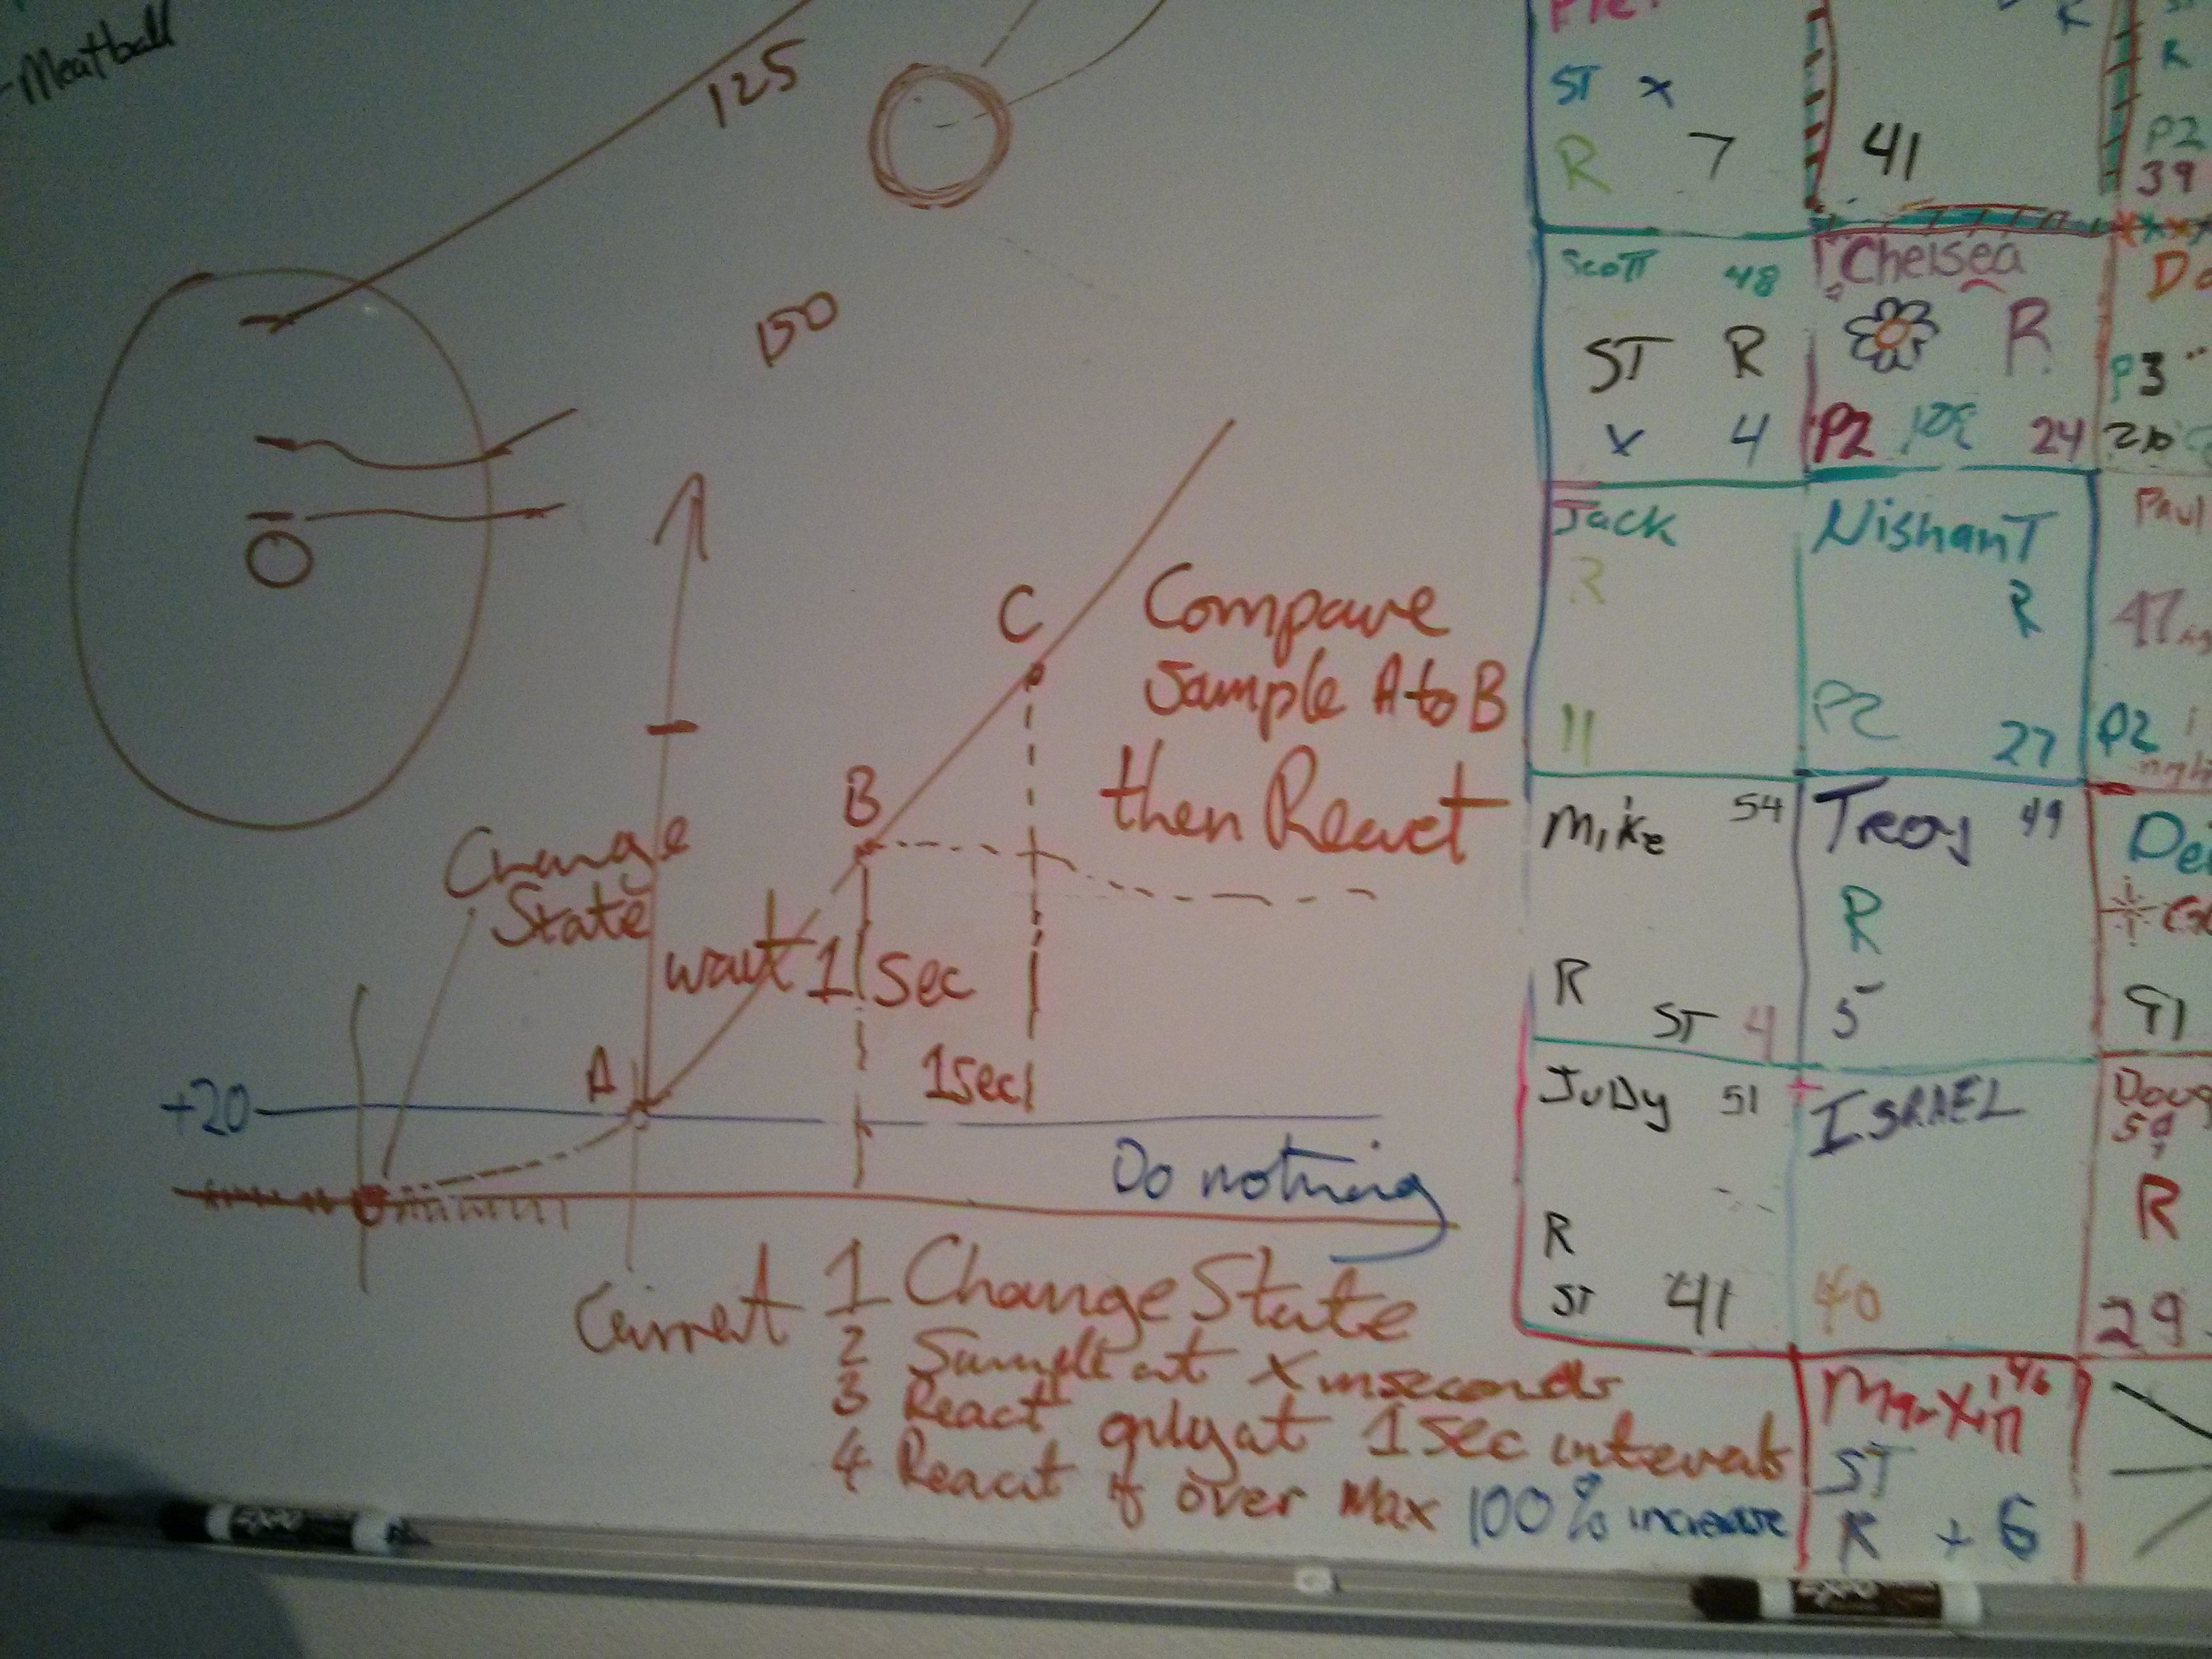 -Meatball
125
150
C
Compare
Sample A to B
then React
B
Change
State
wait 1 Sec
A
1sec
+20
Do nothing
Current 1 Change State
2 Sample at X mseconds
3 React only at 1 Sec intervals
4 React if over Max 100% increase
ST x
R 7
41
R
R
P2
39
Scott 48
ST R
x 4
Chelsea
R
P2 24
P3
Jack
R
11
Nishant
R
P2 27
Paul
47
P2
Mike 54
R
ST 4
Troy 49
R
5
91
Judy 51
R
ST 41
ISRAEL
40
Doug
59
R
29
Maxxin 46
ST
R + 6
EXPO
EXPO